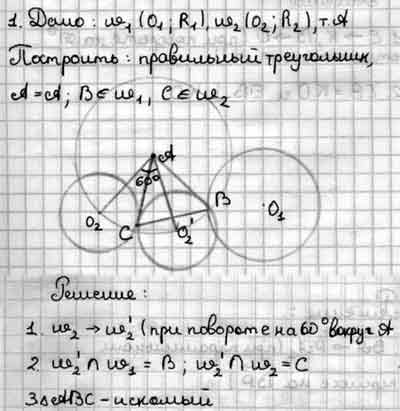 1. Дано: w₁ (O₁; R₁), w₂ (O₂; R₂), т. A
Построить: правильный треугольник,
A = A; B ∈ w₁, C ∈ w₂
A
60°
B
O₁
O₂
C
O₂'
Решение:
1. w₂ → w₂' (при повороте на 60° вокруг A
2. w₂' ∩ w₁ = B; w₂' ∩ w₂ = C
3 △ABC - искомый